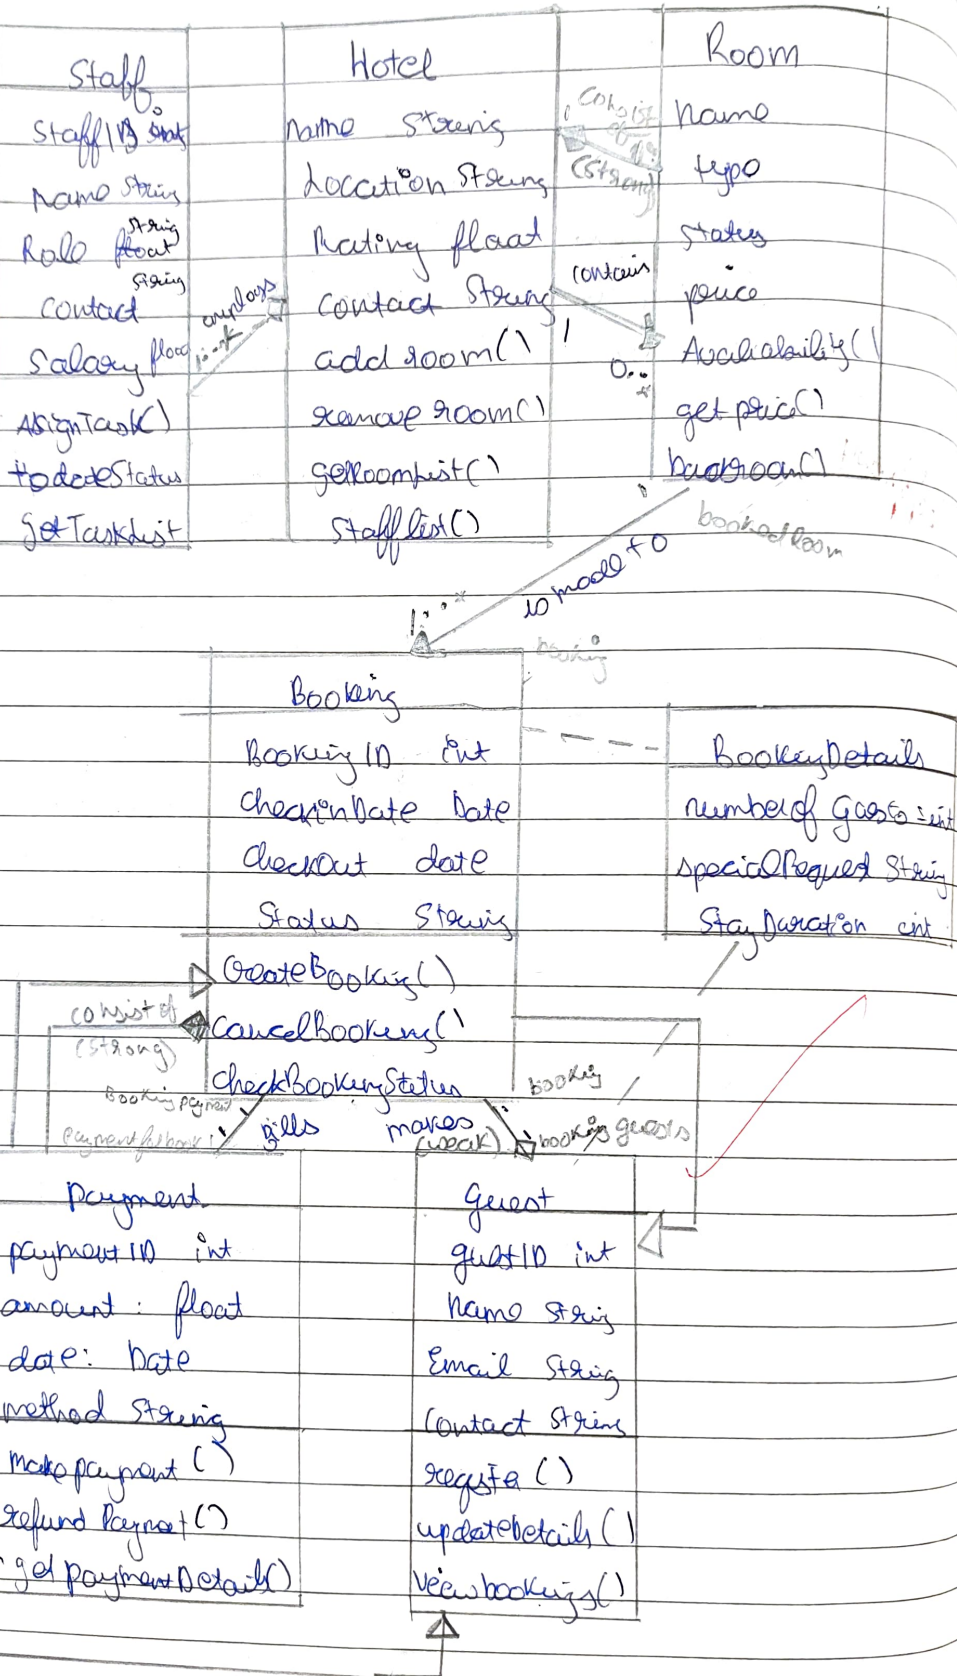 Staff
StaffID
Name String
Role float String
Contact String
Salary float
AssignTask()
getTaskList
employs
1..*
Hotel
name String
Location String
Rating float
Contact String
add room()
remove room()
getRoomList()
Stafflist()
Consist of
(Strong)
contains
1
0..*
Room
name
type
status
price
Avaliability()
get price()
bookroom()
booked Room
is made to
1..*
booking
Booking
BookingID int
CheckinDate Date
CheckOut date
Status String
CreateBooking()
CancelBooking()
CheckBookingStatus
BookingDetails
number of Guests : int
specialRequest String
StayDuration int
consist of
(Strong)
Booking payment
bills
makes
(weak)
booking
booking guests
Payment
paymentID int
amount : float
date: Date
method String
make payment()
refund Payment()
get paymentDetails()
Guest
guestID int
Name String
Email String
Contact String
register()
updateDetails()
viewbookings()